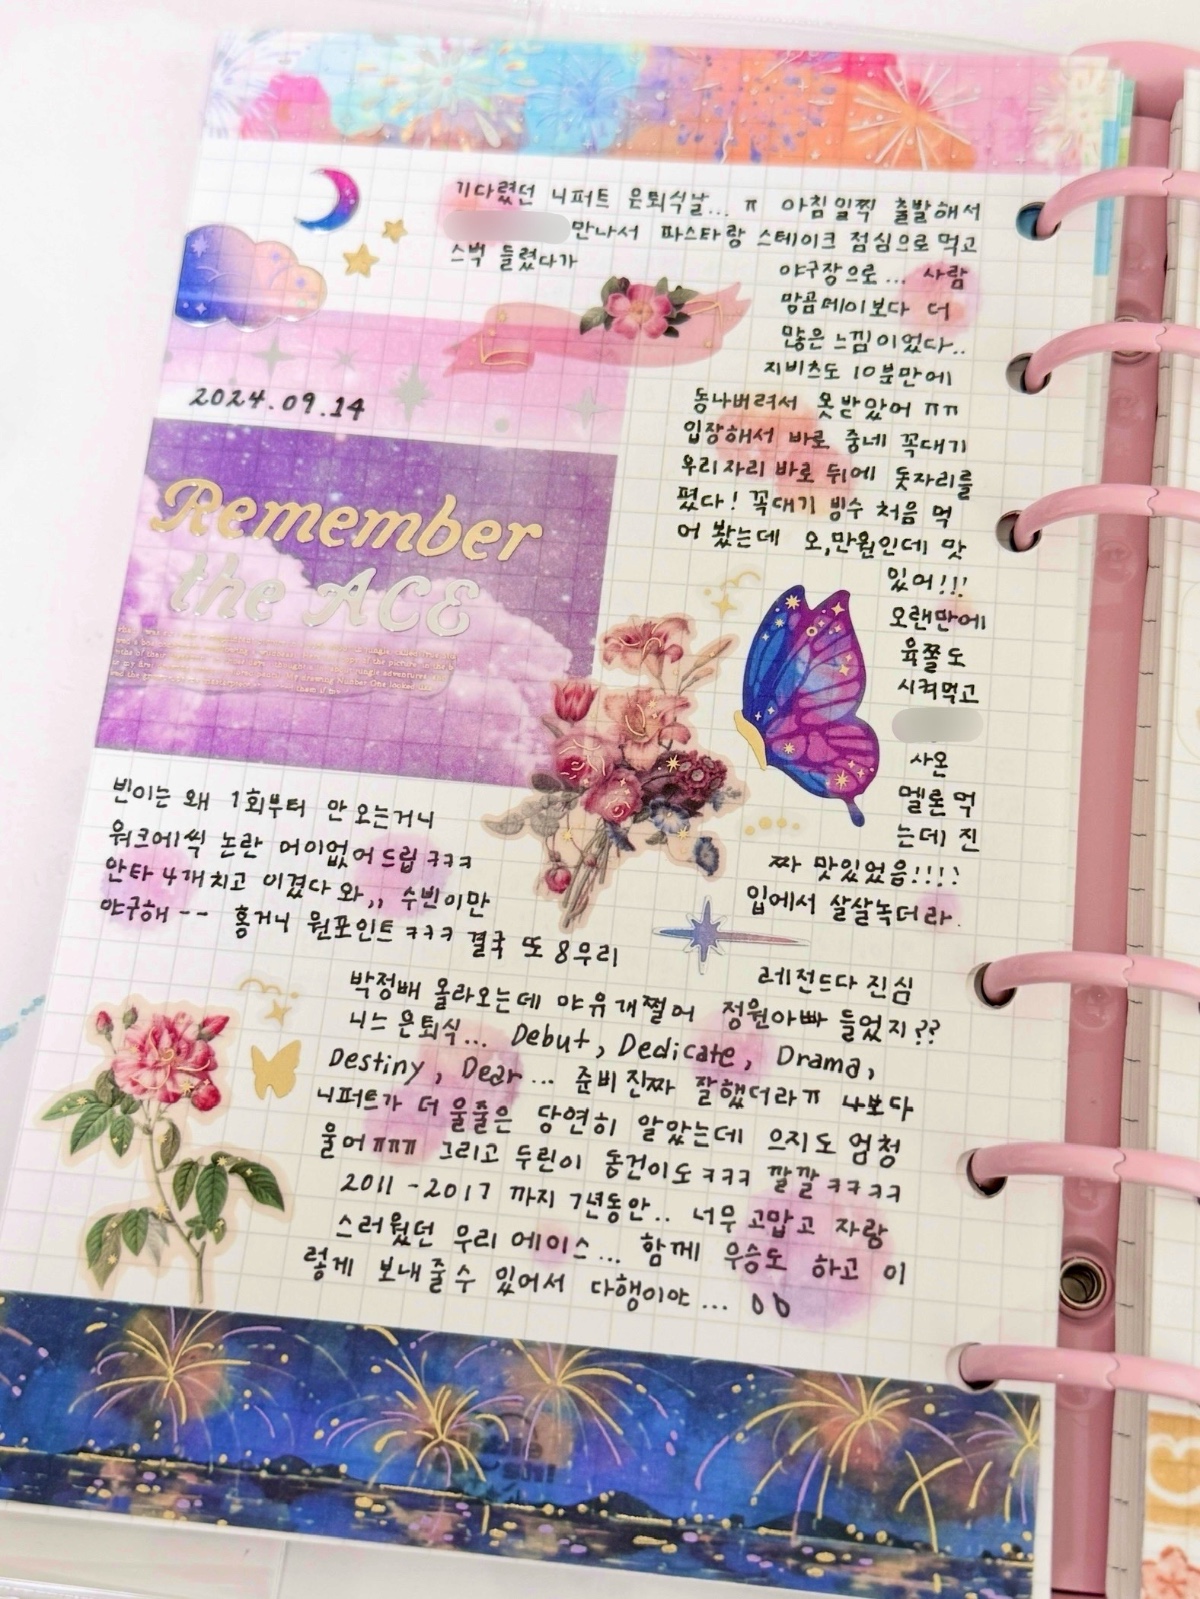 기다렸던 니퍼트 은퇴식날... ㅠ 아침일찍 출발해서
만나서 파스타랑 스테이크 점심으로 먹고
스벅 들렸다가
야구장으로... 사람
망곰데이보다 더
많은 느낌이었다..
지비츠도 10분만에
동나버려서 못받았어 ㅠㅠ
입장해서 바로 중네 꼭대기
우리자리 바로 뒤에 돗자리를
폈다! 꼭대기 빙수 처음 먹
어 봤는데 오,만원인데 맛
있어!!!
오랜만에
육쫄도
시켜먹고
사온
멜론먹
는데 진
짜 맛있었음!!!!
입에서 살살녹더라.
2024.09.14
Remember
the ACE
빈이는 왜 1회부터 안 오는거니
워크에씩 논란 어이없어드립 ㅋㅋㅋ
안타 4개치고 이겼다 와,, 수빈이만
야구해 -- 홍거니 원포인트 ㅋㅋㅋ 결국 또 8우리
레전드다 진심
박정배 올라오는데 야유개쩔어 정원아빠 들었지??
니느은퇴식... Debut, Dedicate, Drama,
Destiny, Dear... 준비진짜 잘했더라ㅠ 나보다
니퍼트가 더 울줄은 당연히 알았는데 으지도 엄청
울어ㅠㅠㅠ 그리고 두린이 동건이도ㅋㅋㅋ 깔깔ㅋㅋㅋㅋ
2011-2017 까지 7년동안.. 너무 고맙고 자랑
스러웠던 우리 에이스... 함께 우승도 하고 이
렇게 보내줄수 있어서 다행이야...